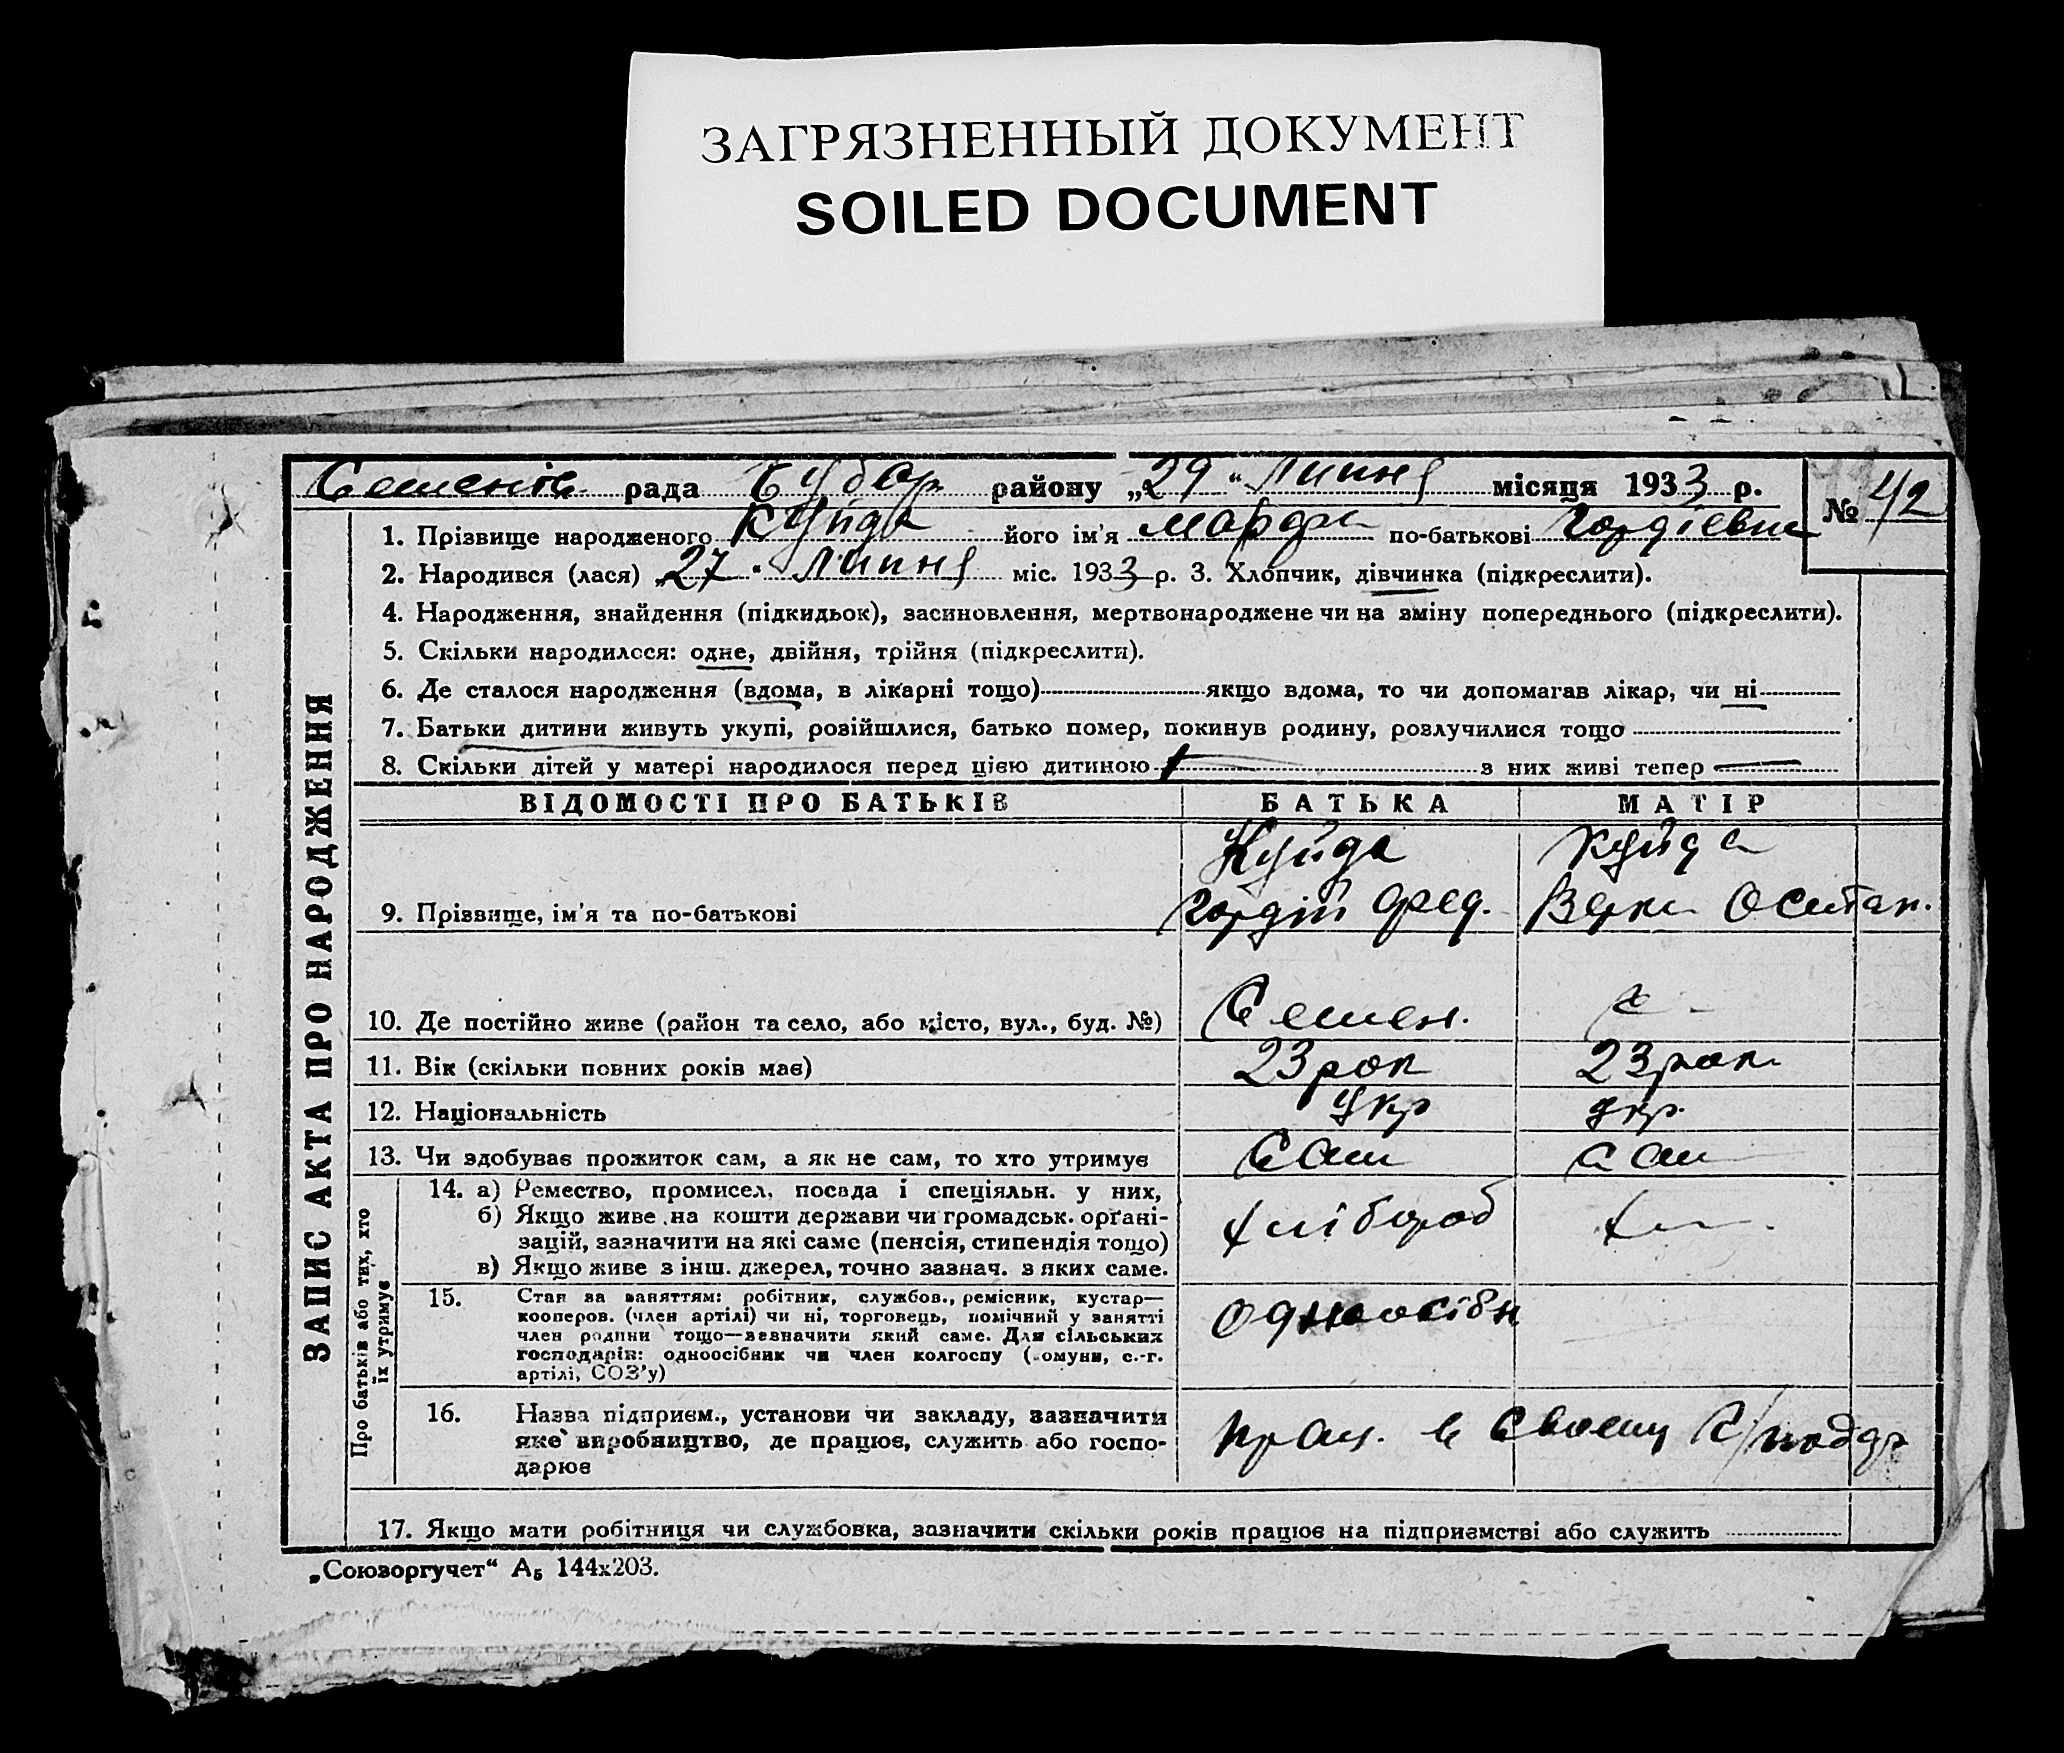 ЗАГРЯЗНЕННЫЙ ДОКУМЕНТ
SOILED DOCUMENT
Семенів рада району „29“ Липня місяця 1933 р. № 42
1. Прізвище народженого Куйда його ім'я Марфа по-батькові Гордіевна
2. Народився (лася) „27“ Липня міс. 1933 р. 3. Хлопчик, дівчинка (підкреслити).
4. Народження, знайдення (підкидьок), засиновлення, мертвонароджене чи на зміну попереднього (підкреслити).
5. Скільки народилося: одне, двійня, трійня (підкреслити).
6. Де сталося народження (вдома, в лікарні тощо) якщо вдома, то чи допомагав лікар, чи ні
7. Батьки дитини живуть укупі, розійшлися, батько помер, покинув родину, розлучилися тощо
8. Скільки дітей у матері народилося перед цією дитиною з них живі тепер —
ЗАПИС АКТА ПРО НАРОДЖЕННЯ
ВІДОМОСТІ ПРО БАТЬКІВ БАТЬКА МАТІР
Куйда Куйда
9. Прізвище, ім'я та по-батькові Гордій Фед. Остап.
10. Де постійно живе (район та село, або місто, вул., буд. №) Семен.
11. Вік (скільки повних років має) 23 рок 23 рок
12. Національність Укр укр.
13. Чи здобуває прожиток сам, а як не сам, то хто утримує Сам сам
Про батьків або тих, хто
їх утримує
14. а) Ремество, промисел, посада і спеціяльн. у них,
б) Якщо живе на кошти держави чи громадськ. орґані-
зацій, зазначити на які саме (пенсія, стипендія тощо) хлібороб
в) Якщо живе з інш. джерел, точно зазнач. з яких саме.
15. Стан за заняттям: робітник, службов., ремісник, кустар—
кооперов. (член артілі) чи ні, торговець, помічний у занятті
член родини тощо—зазначити який саме. Для сільських
господарів: одноосібник чи член колгоспу (комуни, с.-г.
артілі, СОЗ'у)
одноосібн
16. Назва підприєм., установи чи закладу, зазначити
яке виробництво, де працює, служить або госпо-
дарює
прац. в своему
17. Якщо мати робітниця чи службовка, зазначити скільки років працює на підприємстві або служить
„Союзоргучет“ А5 144х203.